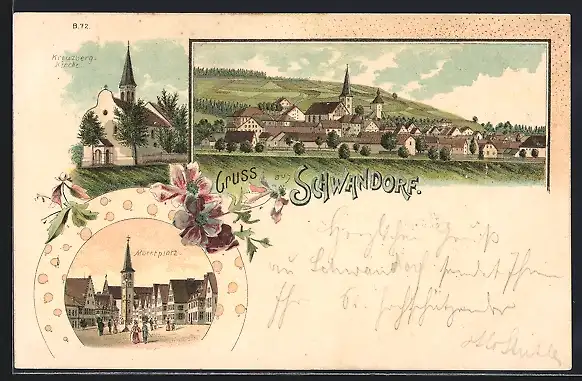 B.72.
Kreuzberg-
Kirche.
Gruss aus SCHWANDORF.
Marktplatz.
Herzlichen Gruß
aus Schwandorf sendet Ihnen
Ihr Sie hochschätzender